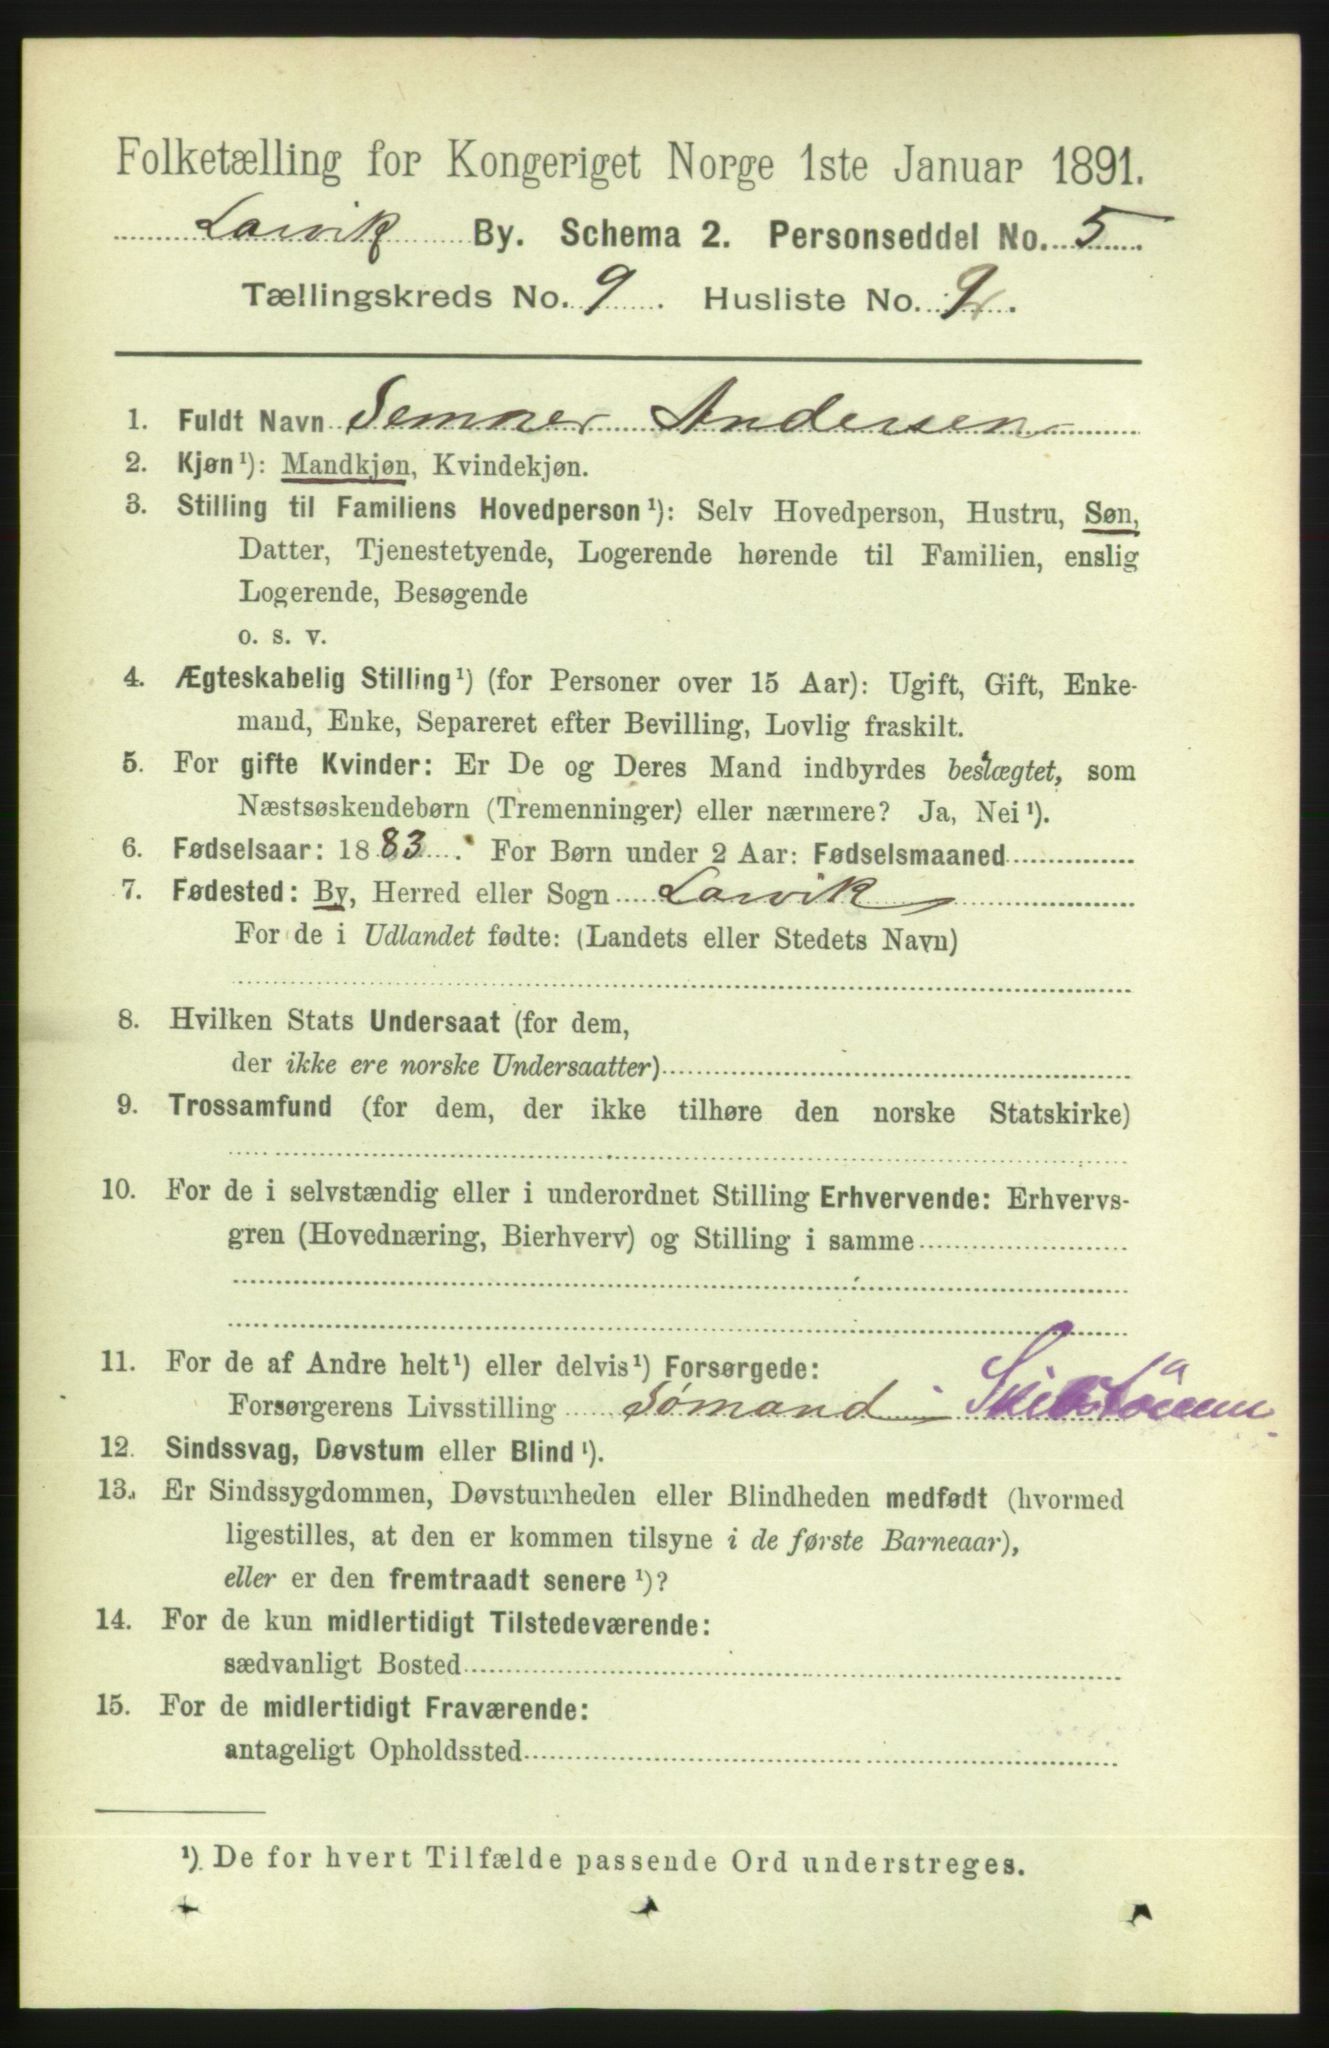 Folketælling for Kongeriget Norge 1ste Januar 1891.
Larvik By. Schema 2. Personseddel No. 5
Tællingskreds No. 9. Husliste No. 9.
1. Fuldt Navn Semner Andersen
2. Kjøn¹): Mandkjøn, Kvindekjøn.
3. Stilling til Familiens Hovedperson¹): Selv Hovedperson, Hustru, Søn,
Datter, Tjenestetyende, Logerende hørende til Familien, enslig
Logerende, Besøgende
o. s. v.
4. Ægteskabelig Stilling¹) (for Personer over 15 Aar): Ugift, Gift, Enke-
mand, Enke, Separeret efter Bevilling, Lovlig fraskilt.
5. For gifte Kvinder: Er De og Deres Mand indbyrdes beslægtet, som
Næstsøskendebørn (Tremenninger) eller nærmere? Ja, Nei¹).
6. Fødselsaar: 1883. For Børn under 2 Aar: Fødselsmaaned
7. Fødested: By, Herred eller Sogn Larvik
For de i Udlandet fødte: (Landets eller Stedets Navn)
8. Hvilken Stats Undersaat (for dem,
der ikke ere norske Undersaatter)
9. Trossamfund (for dem, der ikke tilhøre den norske Statskirke)
10. For de i selvstændig eller i underordnet Stilling Erhvervende: Erhvervs-
gren (Hovednæring, Bierhverv) og Stilling i samme
11. For de af Andre helt¹) eller delvis¹) Forsørgede:
Forsørgerens Livsstilling Sømand
12. Sindssvag, Døvstum eller Blind¹).
13. Er Sindssygdommen, Døvstumheden eller Blindheden medfødt (hvormed
ligestilles, at den er kommen tilsyne i de første Barneaar),
eller er den fremtraadt senere¹)?
14. For de kun midlertidigt Tilstedeværende:
sædvanligt Bosted
15. For de midlertidigt Fraværende:
antageligt Opholdssted
¹) De for hvert Tilfælde passende Ord understreges.